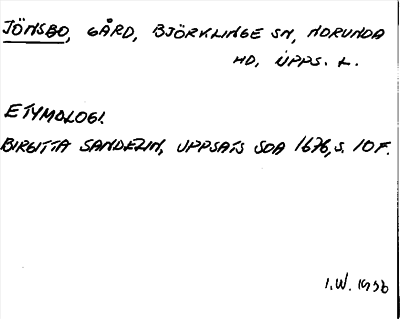 JÖNSBO, GÅRD, BJÖRKLINGE SN, NORUNDA
HD, UPPS. L.
ETYMOLOGI.
BIRGITTA SANDELIN, UPPSATS SOA 1676, S. 10 F.
I.W.